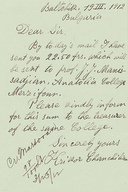 Balchik, 19.III. 1912
Bulgaria
Dear Sir.
By to day's mail I have
sent you 22.50 frs. which will
be sent to prof. J. J. Manissadjian
Anatolia College
Merzifoun.
Please kindly inform
for this sum to the treasurer
of the same College.
Sincerely